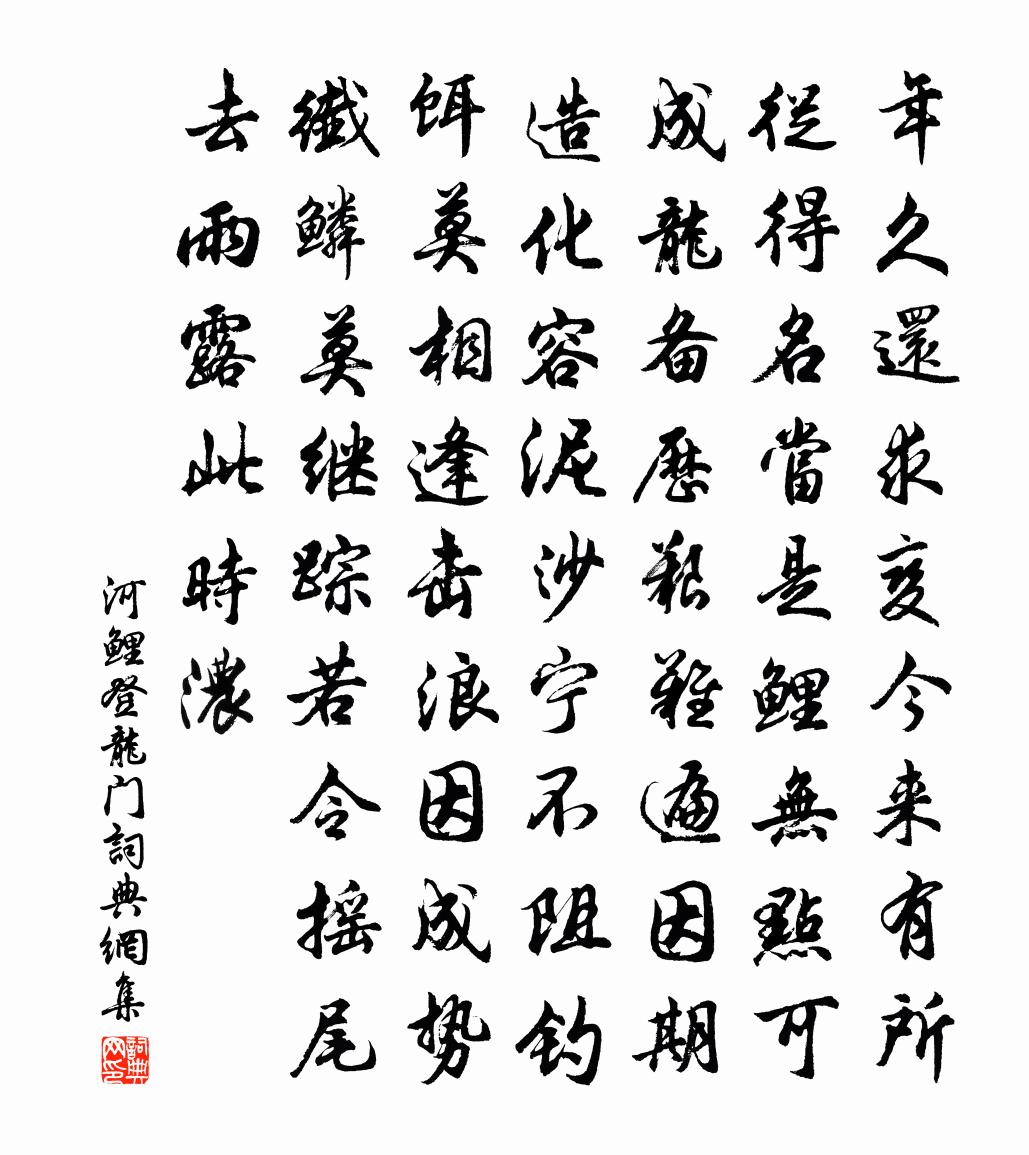 年久還求变今来有所
従得名當是鯉無點可
成龍备歷艱難遍因期
造化容泥沙宁不阻钓
饵莫相逢击浪因成势
纖鳞莫继踪若令摇尾
去雨露此時濃
河鯉登龍门詞典網集
詞典网印